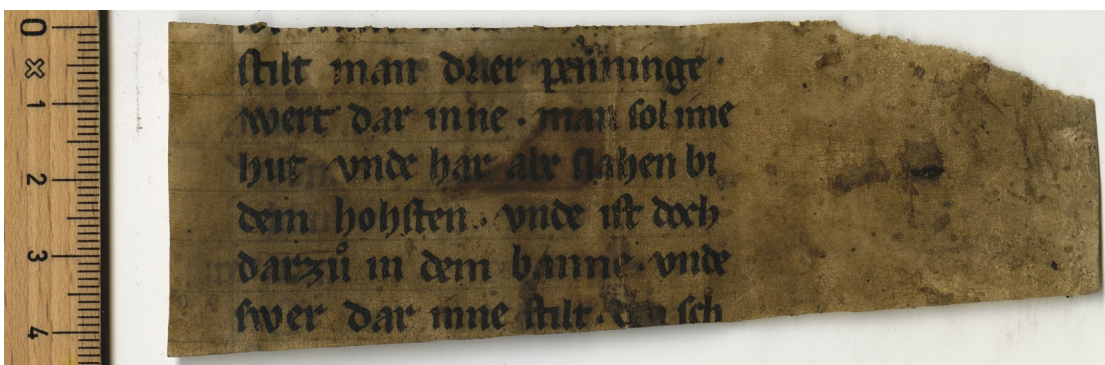 ſtilt man drier pfenninge ·
wert dar inne · man sol ime
hut vnde har abe ſlahen bi
dem hohſten · vnde iſt doch
darzuͦ in dem banne · vnde
ſwer dar inne ſtilt · den ſch